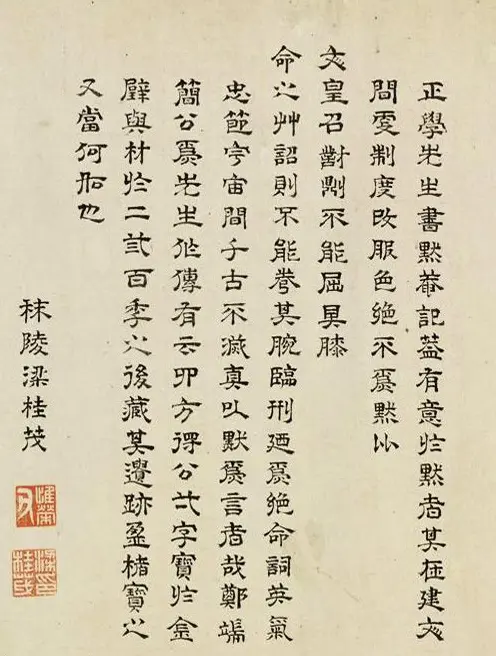 正學先生書默菴記葢有意於默者其在建文
間更制度改服色絕不爲默以
文皇召對則不能屈其膝
命之艸詔則不能其腕臨刑迺爲絕命詞英氣
忠節宇宙間千古不滅真以默爲言者哉鄭端
簡公爲先生作傳有云卬方得公弌字寶於金
璧與材於二弍百季之後藏其遺跡盈楮寶之
又當何如也
秣陵梁桂茂
梁桂茂印